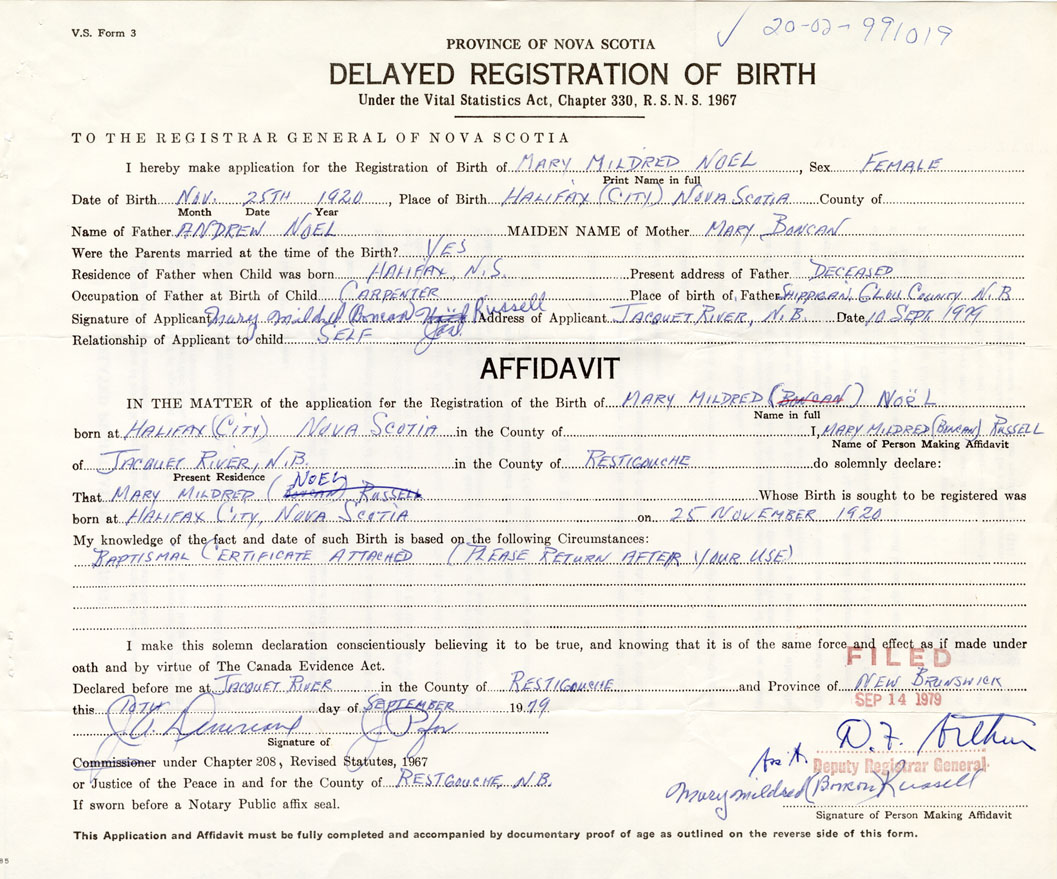 V.S. Form 3
✓ 20-02-991019
PROVINCE OF NOVA SCOTIA
DELAYED REGISTRATION OF BIRTH
Under the Vital Statistics Act, Chapter 330, R.S.N.S. 1967
TO THE REGISTRAR GENERAL OF NOVA SCOTIA
I hereby make application for the Registration of Birth of MARY MILDRED NOEL, Sex FEMALE
Print Name in full
Date of Birth NOV. 25TH 1920, Place of Birth HALIFAX (CITY) NOVA SCOTIA County of
Month Date Year
Name of Father ANDREW NOEL MAIDEN NAME of Mother MARY BONCAN
Were the Parents married at the time of the Birth? YES
Residence of Father when Child was born HALIFAX, N.S. Present address of Father DECEASED
Occupation of Father at Birth of Child CARPENTER Place of birth of Father SHIPPIGAN, GLOU. COUNTY N.B
Signature of Applicant Mary Mildred Boncan Russell Address of Applicant JACQUET RIVER, N.B. Date 10 SEPT 1979
Relationship of Applicant to child SELF
AFFIDAVIT
IN THE MATTER of the application for the Registration of the Birth of MARY MILDRED (BUNCAN) NOËL
Name in full
born at HALIFAX (CITY) NOVA SCOTIA in the County of I, MARY MILDRED (BUNCAN) RUSSELL
Name of Person Making Affidavit
of JACQUET RIVER, N.B. in the County of RESTIGOUCHE do solemnly declare:
Present Residence
NOEL
That MARY MILDRED (BUNCAN) RUSSELL Whose Birth is sought to be registered was
born at HALIFAX CITY, NOVA SCOTIA on 25 NOVEMBER 1920
My knowledge of the fact and date of such Birth is based on the following Circumstances:
BAPTISMAL CERTIFICATE ATTACHED (PLEASE RETURN AFTER YOUR USE)
I make this solemn declaration conscientiously believing it to be true, and knowing that it is of the same force and effect as if made under
oath and by virtue of The Canada Evidence Act.
FILED
Declared before me at JACQUET RIVER in the County of RESTIGOUCHE and Province of NEW BRUNSWICK
SEP 14 1979
this 10TH day of SEPTEMBER 1979
Signature of
D.F. Arthur
Commissioner under Chapter 208, Revised Statutes, 1967
Deputy Registrar General
or Justice of the Peace in and for the County of RESTGOUCHE, N.B.
Mary Mildred (Boncan) Russell
If sworn before a Notary Public affix seal.
Signature of Person Making Affidavit
This Application and Affidavit must be fully completed and accompanied by documentary proof of age as outlined on the reverse side of this form.
85